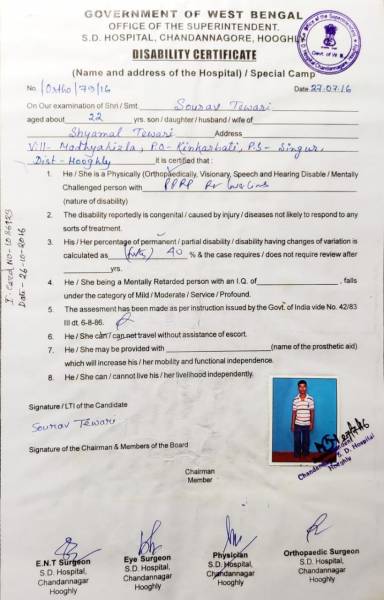 GOVERNMENT OF WEST BENGAL
OFFICE OF THE SUPERINTENDENT.
S.D. HOSPITAL, CHANDANNAGORE, HOOGHLY
DISABILITY CERTIFICATE
(Name and address of the Hospital) / Special Camp
No. /Ortho/79/16 Date 27.07.16
On Our examination of Shri / Smt. Sourav Tewari
aged about 22 yrs. son / daughter / husband / wife of
Shyamal Tewari Address
Vill- Madhyahiela, P.O- Kinkarbati, P.S- Singur,
Dist- Hooghly It is certified that :
1. He / She is a Physically (Orthopaedically, Visionary, Speech and Hearing Disable / Mentally
Challenged person with PPRP
(nature of disability)
2. The disability reportedly is congenital / caused by injury / diseases not likely to respond to any
sorts of treatment.
3. His / Her percentage of permanent / partial disability / disability having changes of variation is
calculated as (forty) 40 % & the case requires / does not require review after
yrs.
4. He / She being a Mentally Retarded person with an I.Q. of , falls
under the category of Mild / Moderate / Service / Profound.
5. The assesment has been made as per instruction issued by the Govt. of India vide No. 42/83
III dt. 6-8-86.
6. He / She can / can not travel without assistance of escort.
7. He / She may be provided with (name of the prosthetic aid)
which will increase his / her mobility and functional independence.
8. He / She can / cannot live his / her livelihood independently.
I. Card No- 1086923
Date - 26-10-2016
Signature / LTI of the Candidate
Sourav Tewari
Signature of the Chairman & Members of the Board
Chandannagar S. D. Hospital
Hooghly
Chairman
Member
E.N.T Surgeon
S.D. Hospital,
Chandannagar
Hooghly
Eye Surgeon
S.D. Hospital,
Chandannagar
Hooghly
Physician
S.D. Hospital,
Chandannagar
Hooghly
Orthopaedic Surgeon
S.D. Hospital,
Chandannagar
Hooghly